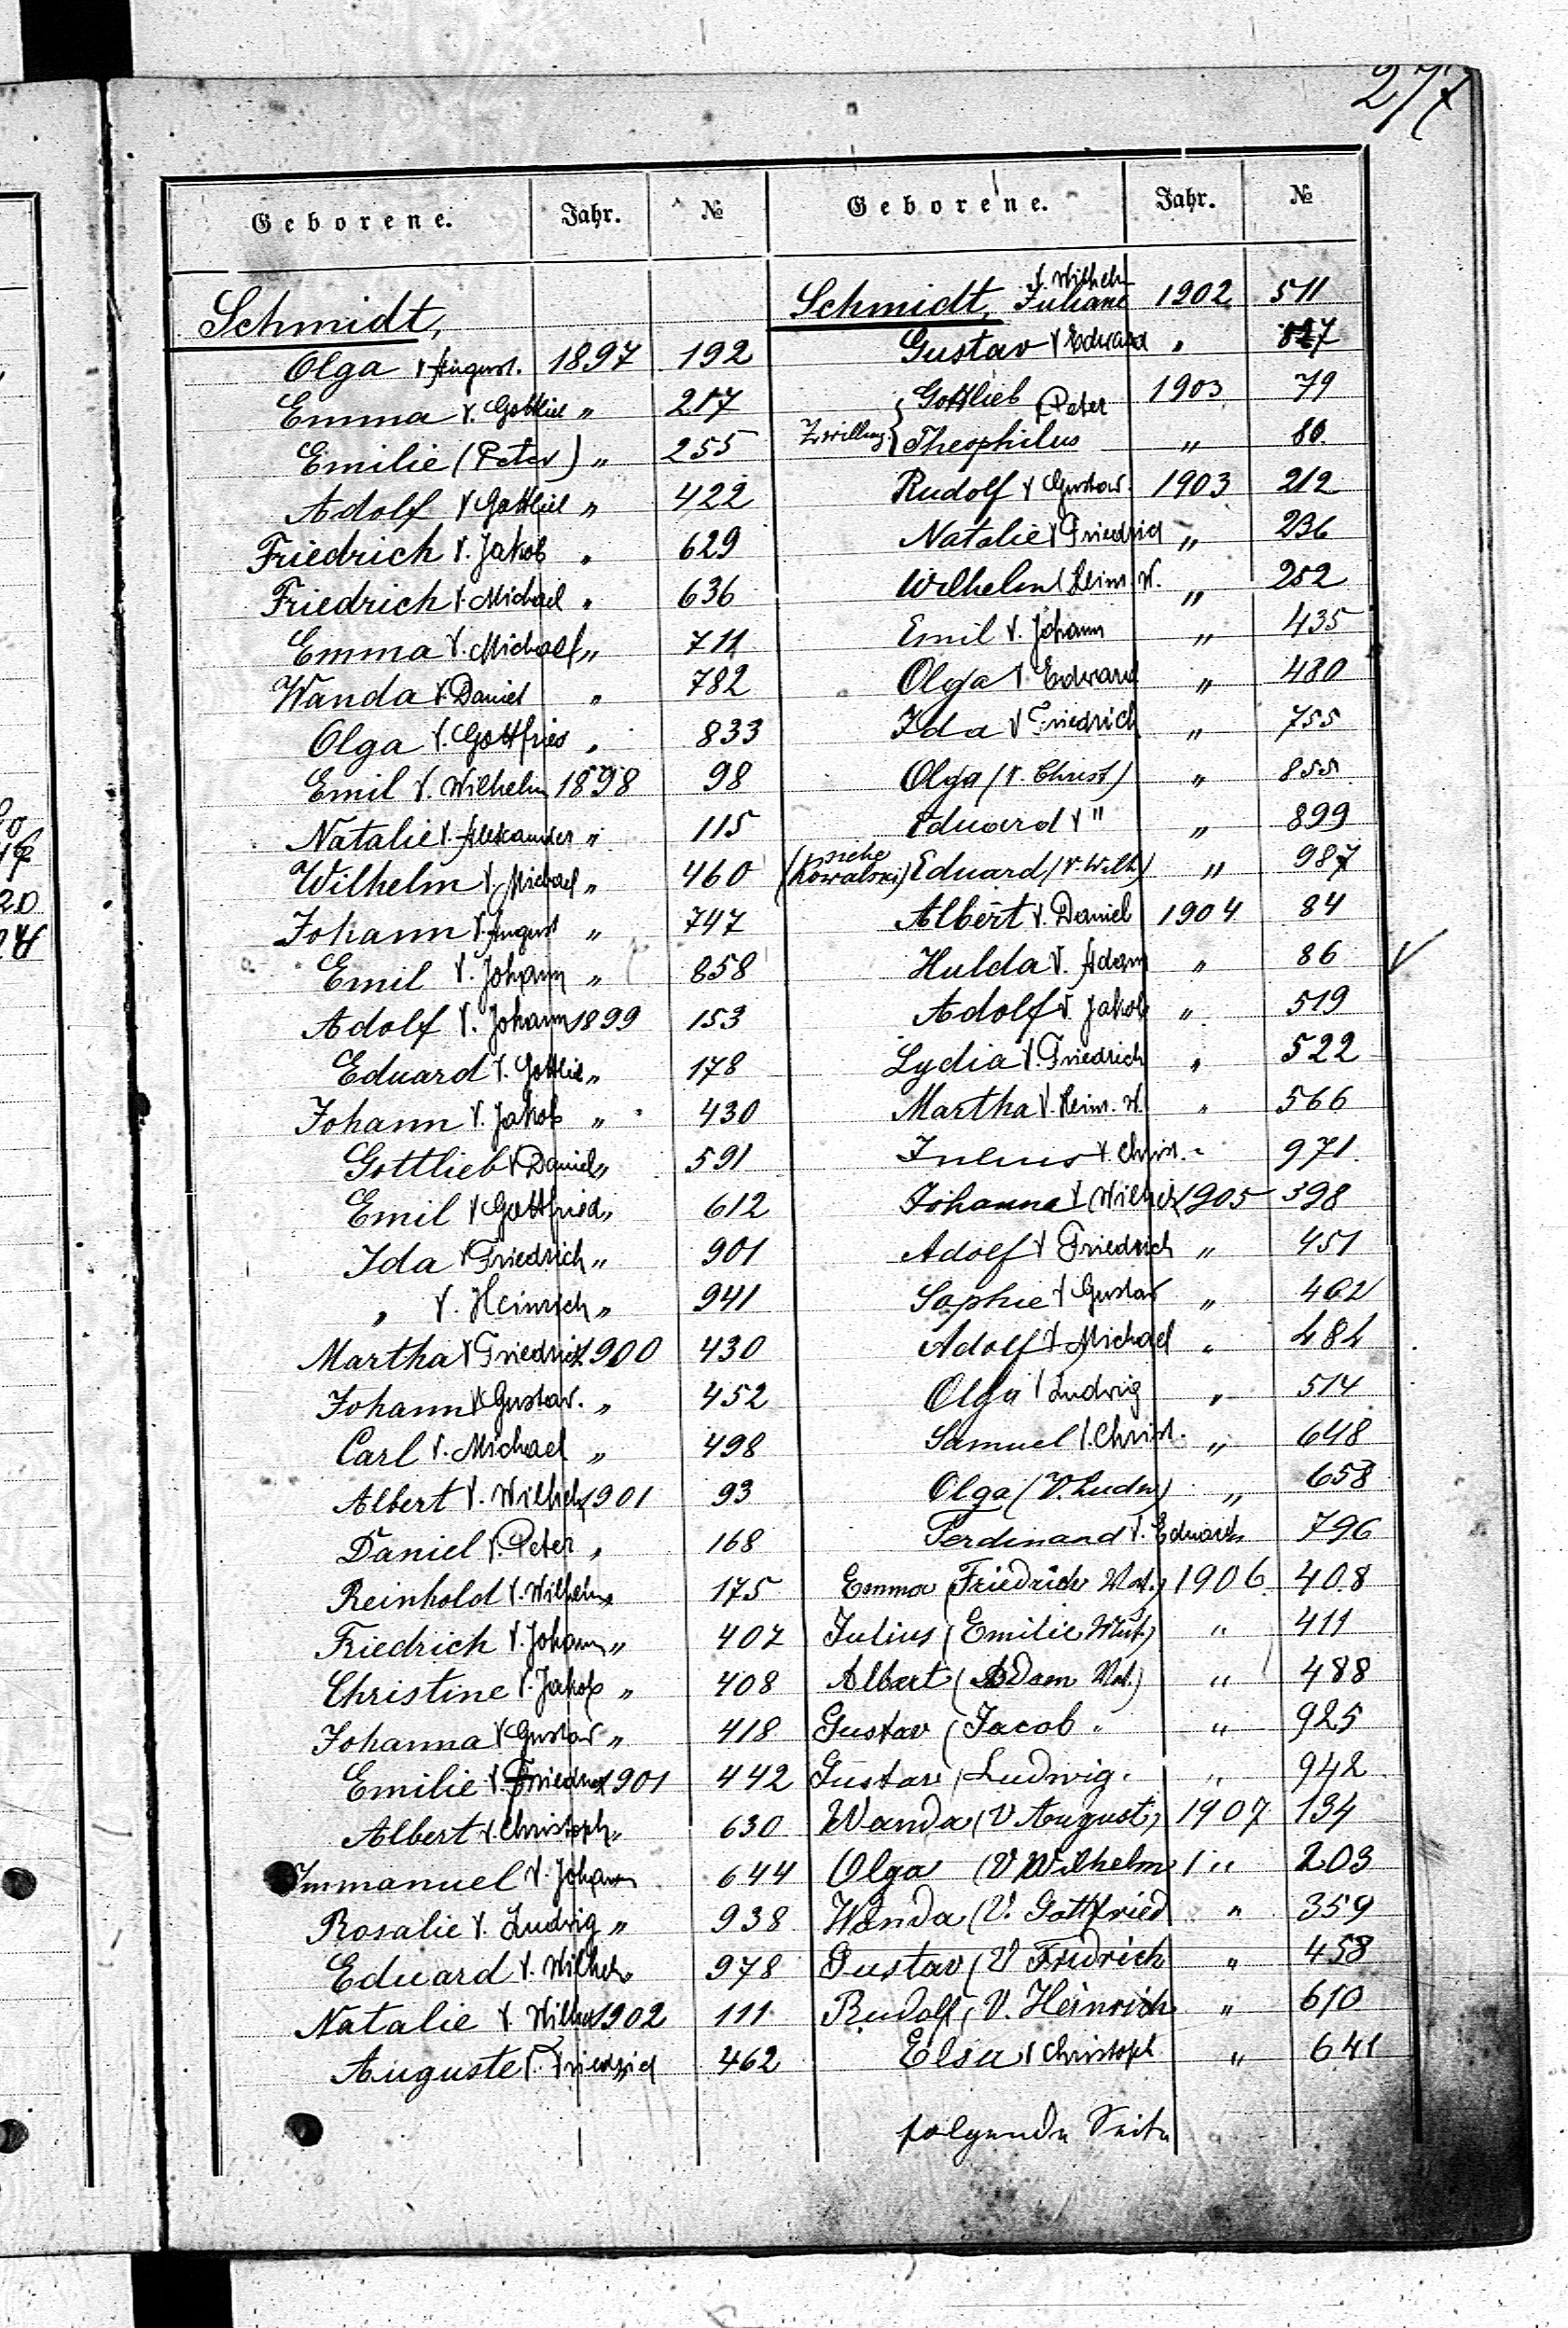 277
Geborene. Jahr. №
Schmidt,
Olga v August. 1897 192
Emma v. Gottlieb " 217
Emilie (Peter) " 255
Adolf v Gottlieb " 422
Friedrich v. Jakob " 629
Friedrich v. Michael " 636
Emma v. Michael " 711
Wanda v Daniel " 782
Olga v. Gottfried " 833
Emil v. Wilhelm 1898 98
Natalie v. Alexander " 115
Wilhelm v. Michael " 460
Johann v. August " 747
Emil v. Johann " 858
Adolf v. Johann 1899 153
Eduard v. Gottlieb " 178
Johann v. Jakob " 430
Gottlieb v Daniel " 591
Emil v Gottfried " 612
Ida v Friedrich " 901
" v. Heinrich " 941
Martha v Friedrich 1900 430
Johann v Gustav. " 452
Carl v. Michael " 498
Albert v. Wilhelm 1901 93
Daniel v. Peter " 168
Reinhold v. Wilhelm " 175
Friedrich v. Johann " 407
Christine v. Jakob " 408
Johanna v Gustav " 418
Emilie v. Friedrich 1901 442
Albert v. Christoph " 630
Immanuel v. Johann 644
Rosalie v. Ludwig " 938
Eduard v. Wilhelm 978
Natalie v. Wilhelm 1902 111
Auguste v. Friedrich 462
Geborene. Jahr. №
Schmidt, Juliane v. Wilhelm 1902 511
Gustav v Edward "
Zwilling. { Gottlieb Peter 1903 79
Theophilus " 80
Rudolf v Gustav. 1903 212
Natalie v Friedrich " 236
Wilhelm (Heinr. W. " 252
Emil v. Johann " 435
Olga v. Edward " 480
Ida v Friedrich " 755
Olga (v. Christ) " 855
Eduard v " " 899
(siehe Kowalski) Eduard (v. Wilh) " 987
Albert v. Daniel 1904 84
Hulda v. Adam " 86
Adolf v. Jakob " 519
Lydia v. Friedrich " 522
Martha v. Heinr. W. " 566
Julius v. Christ. " 971
Johanna v. Wilhelm 1905 398
Adolf v Friedrich " 451
Sophie v Gustav " 462
Adolf v. Michael " 484
Olga v Ludwig " 514
Samuel v. Christ. " 648
Olga (V. Ludw) " 658
Ferdinand v. Eduard " 796
Emma (Friedrich Vat.) 1906 408
Julius (Emilie Mut.) " 411
Albert (Adam Vat.) " 488
Gustav (Jacob " " 925
Gustav (Ludwig. " 942
Wanda (V August) 1907 134
Olga (V Wilhelm) " 203
Wanda (V. Gottfried " 359
Gustav (V Fridrich " 458
Rudolf (V. Heinrich " 610
Elsa v Christoph " 641
folgende Seite